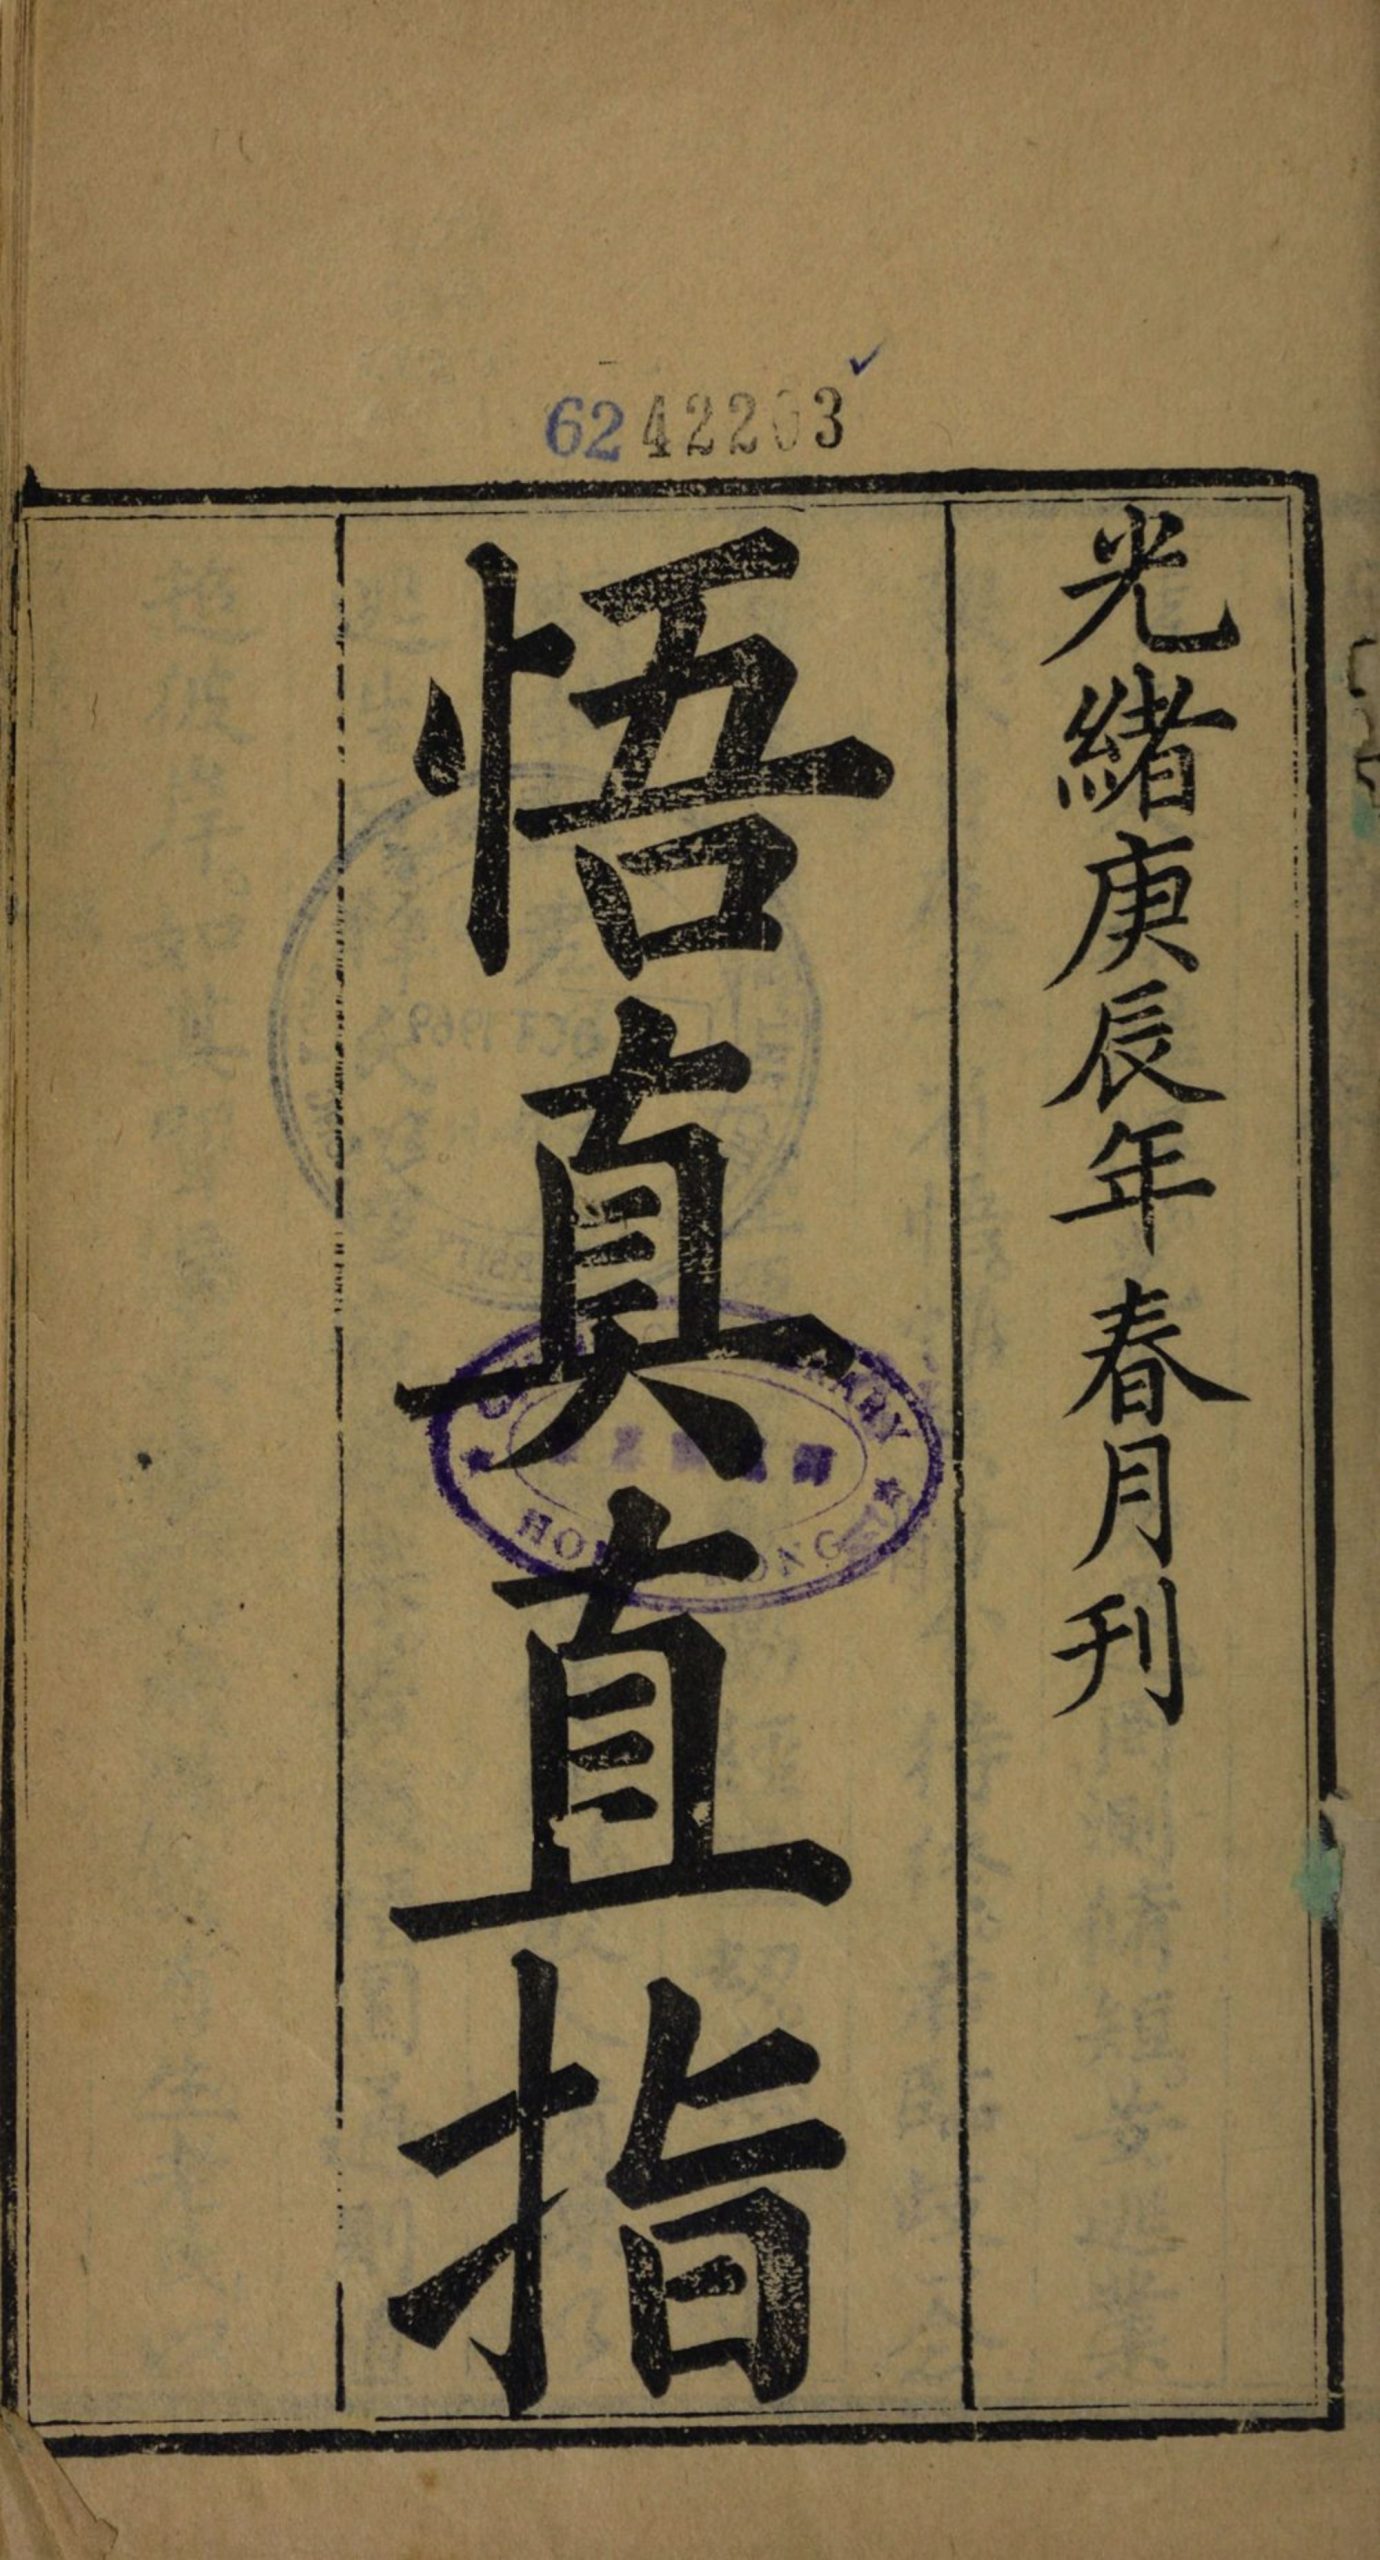 6242203
光緒庚辰年春月刊
悟真直指
OCT 1969
HONG KONG